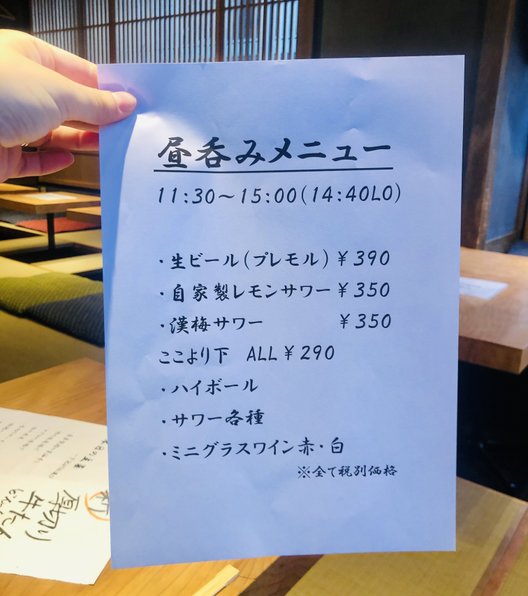 昼呑みメニュー
11:30～15:00(14:40LO)
・生ビール(プレモル)¥390
・自家製レモンサワー¥350
・漢梅サワー ¥350
ここより下 ALL¥290
・ハイボール
・サワー各種
・ミニグラスワイン赤・白
※全て税別価格
厚切り
牛たん